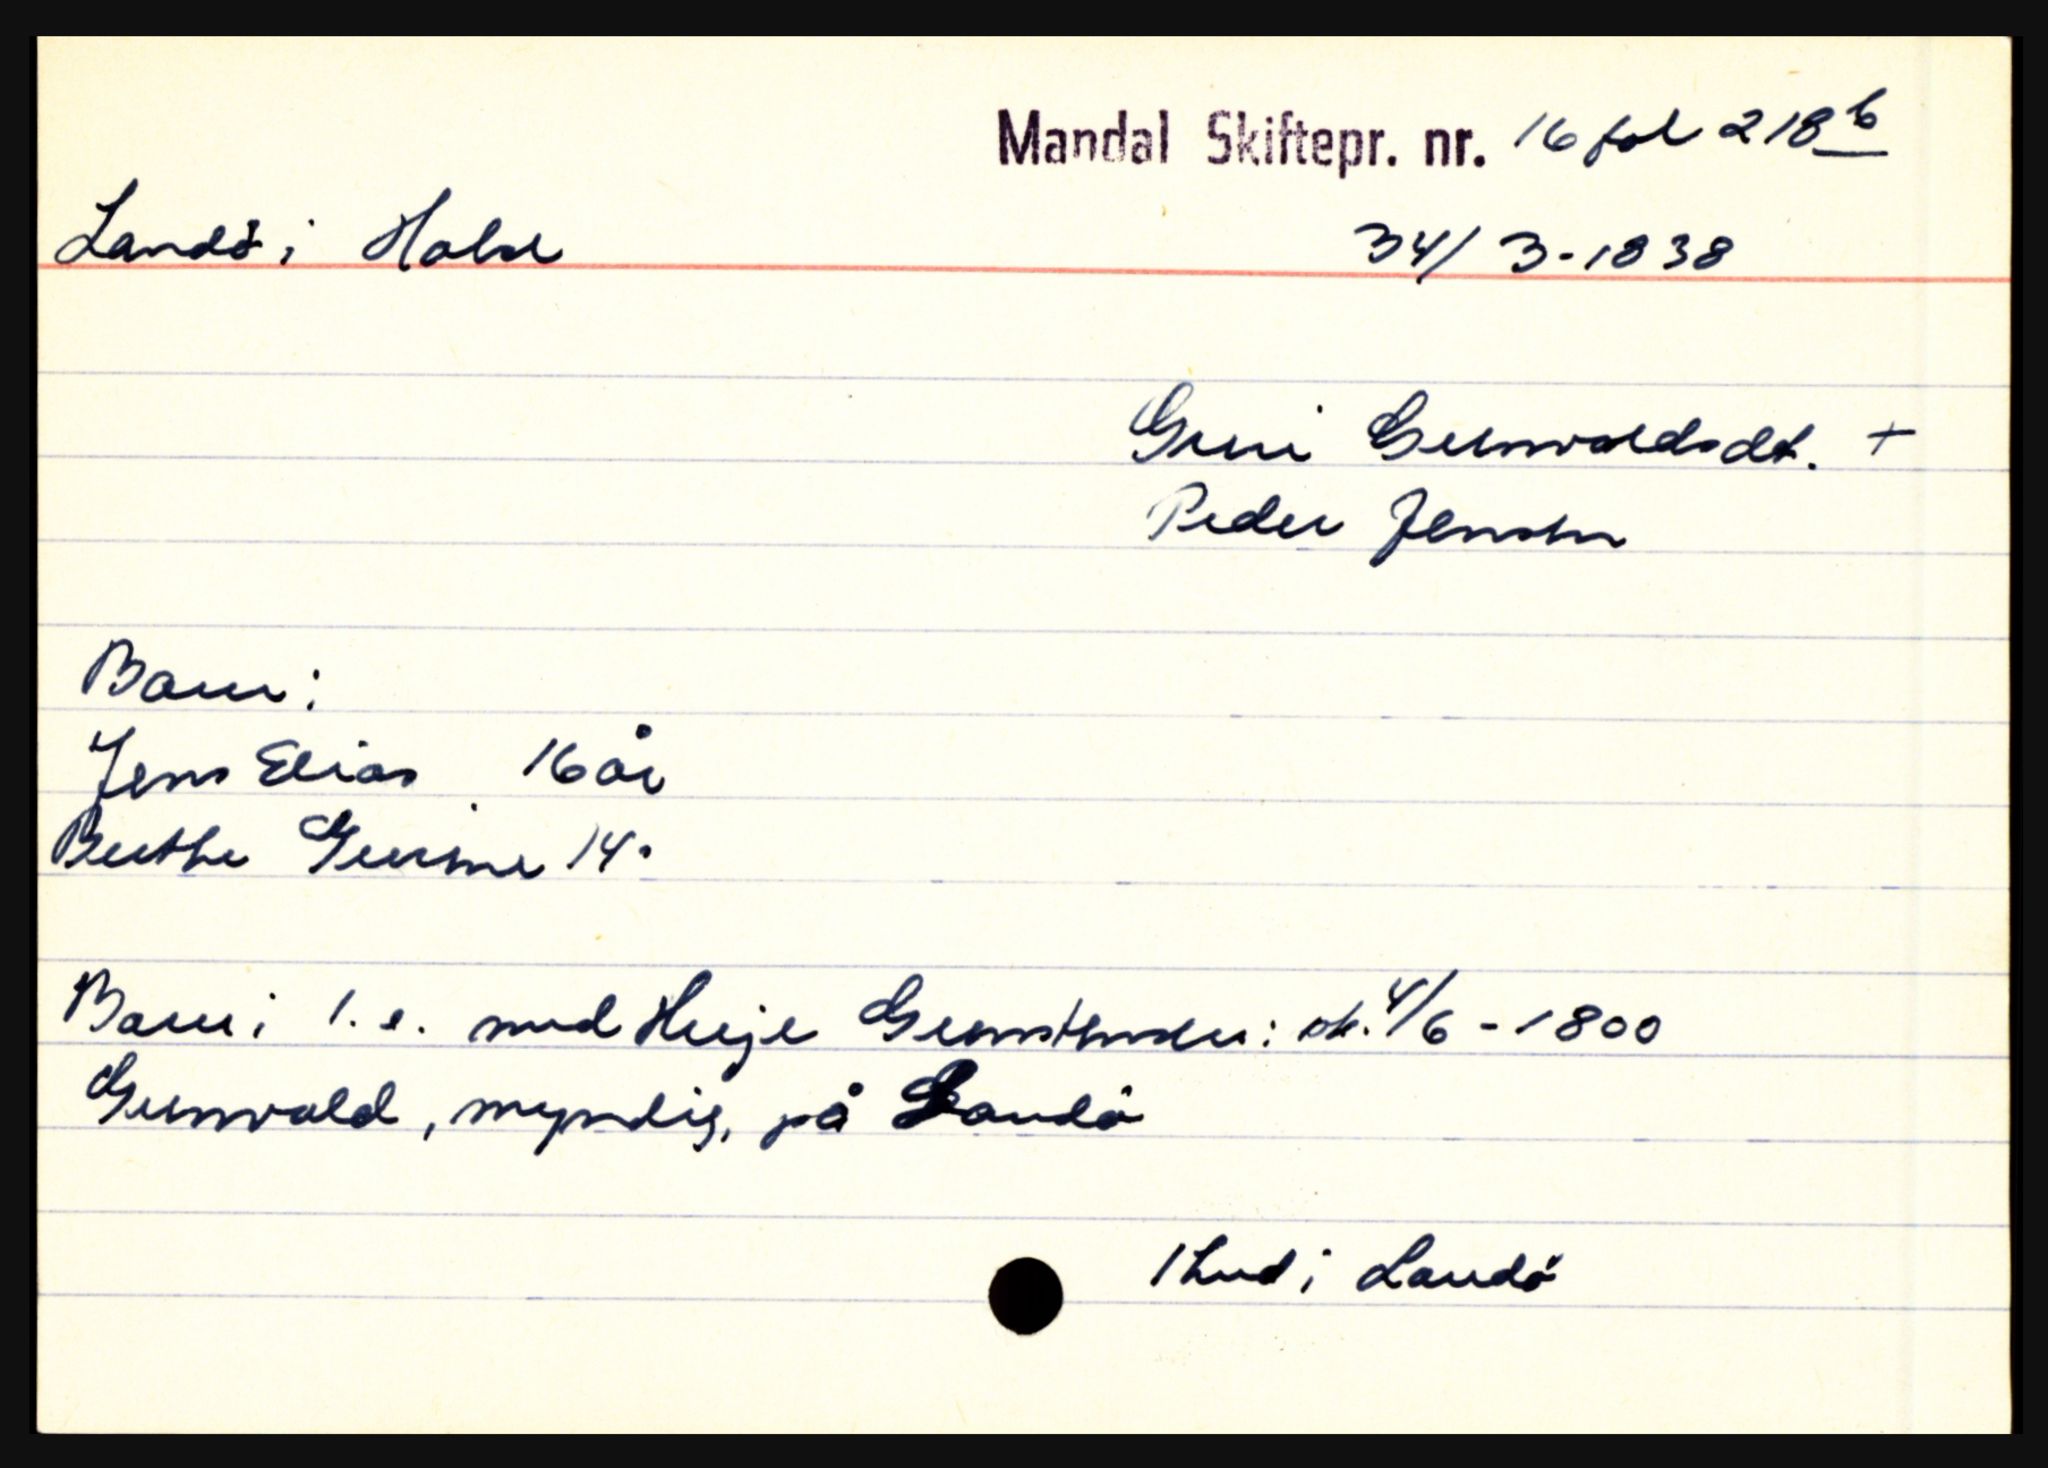 Mandal Skiftepr. nr. 16 fol 218b
Landö i Halse 34/3-1838
Guri Gunvaldsdt. +
Peder Jensen
Barn:
Jens Elias 16 år
Berthe Gurine 14"
Barn i 1. e. med Herje Gunstensen: sk. 4/6-1800
Gunvald, myndig, på Landö
1 hud i Landö